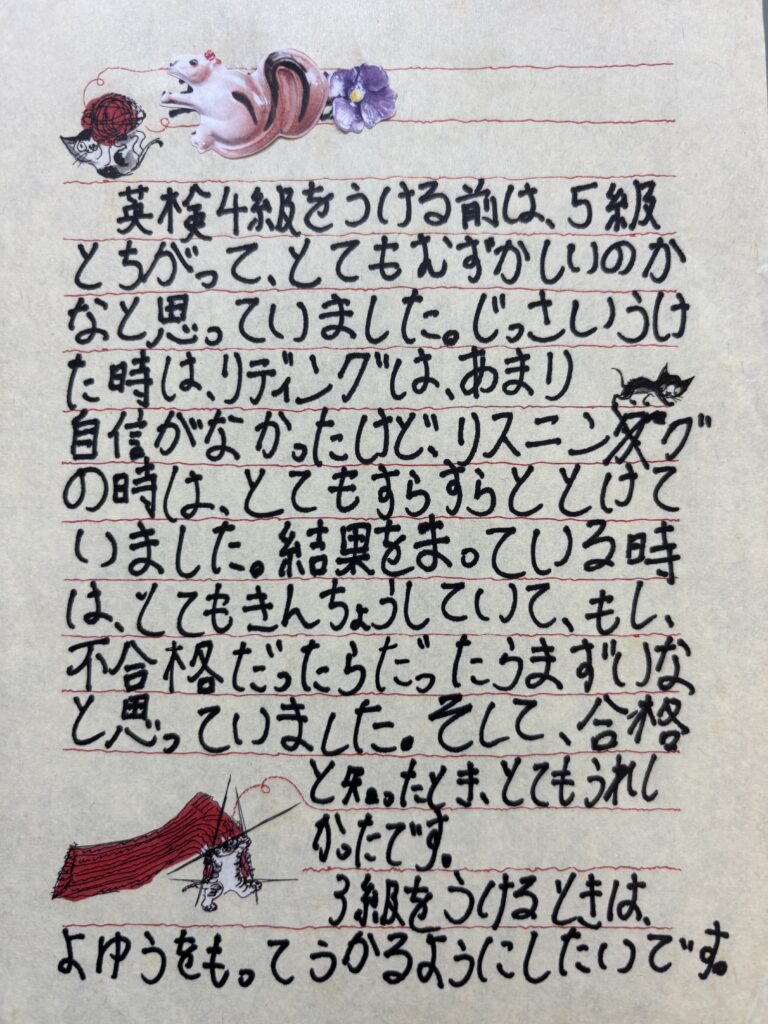 英検4級をうける前は、5級
とちがって、とてもむずかしいのか
なと思っていました。じっさいうけ
た時は、リディングは、あまり
自信がなかったけど、リスニング
の時は、とてもすらすらととけて
いました。結果をまっている時
は、とてもきんちょうしていて、もし、
不合格だったらだったらまずいな
と思っていました。そして、合格
と知ったとき、とてもうれし
かったです。
3級をうけるときは、
よゆうをもってうかるようにしたいです。